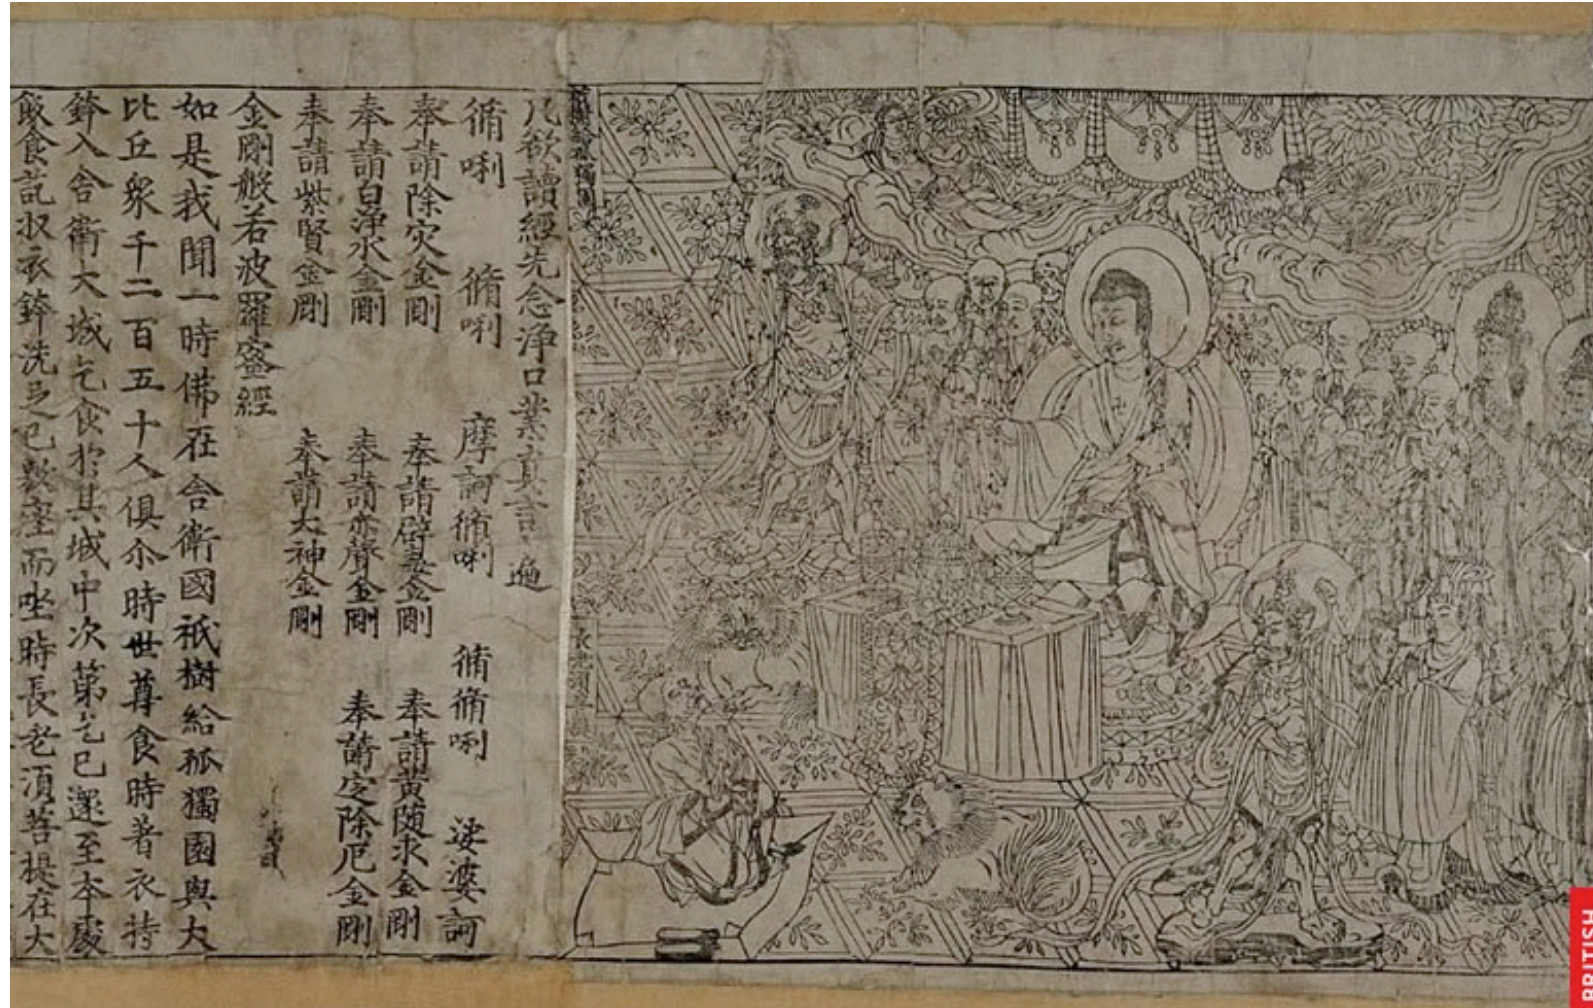 BRITISH
祇樹給孤獨園
長老須菩提
凡欲讀經先念淨口業真言一遍
脩唎 脩唎 摩訶脩唎 脩脩唎 娑婆訶
奉請除灾金剛 奉請辟毒金剛 奉請黃隨求金剛
奉請白淨水金剛 奉請赤聲金剛 奉請定除厄金剛
奉請紫賢金剛 奉請大神金剛
金剛般若波羅蜜經
如是我聞一時佛在舍衛國祇樹給孤獨園與大
比丘眾千二百五十人俱尒時世尊食時著衣持
鉢入舍衛大城乞食於其城中次第乞已還至本處
飯食訖收衣鉢洗足已敷座而坐時長老須菩提在大